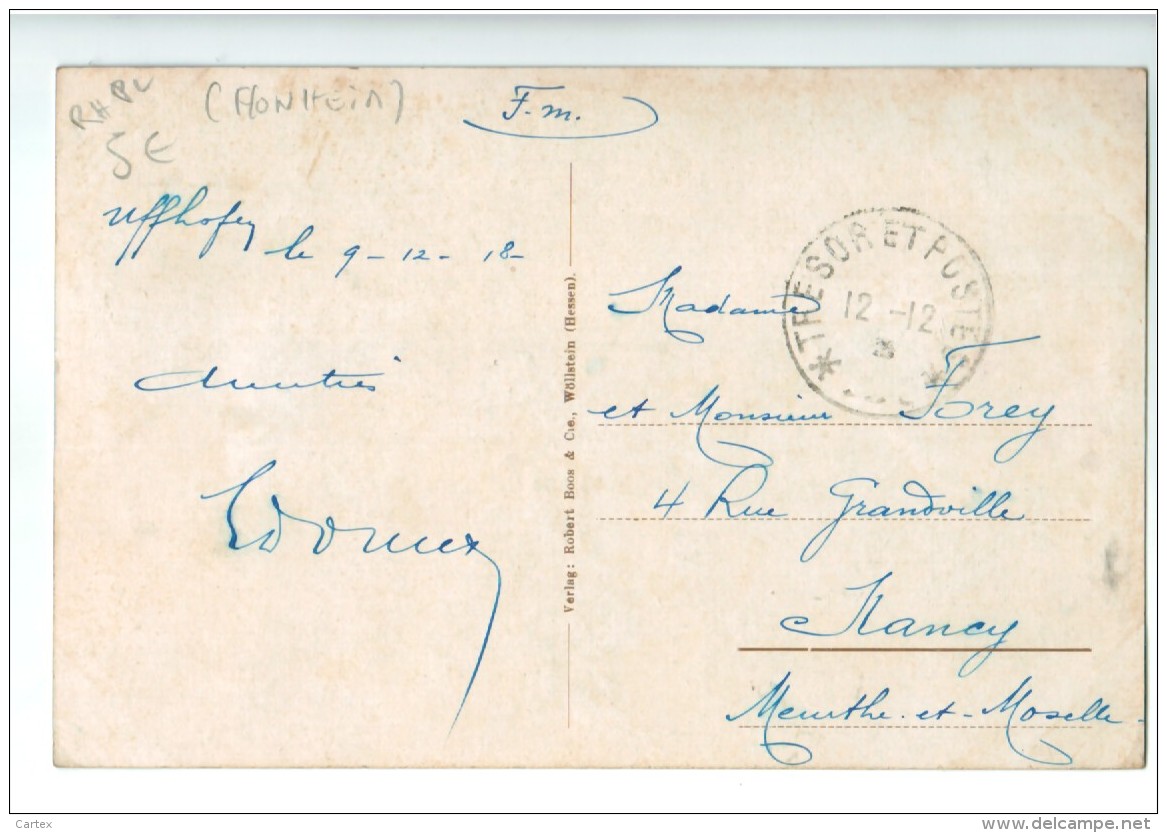 RH PL
(FlONHEiM)
5 €
F. m.
Uffhofen
le 9 - 12 - 18 -
Amitiés
Verlag: Robert Boos & Cie., Wöllstein (Hessen).
* TRESOR ET POSTES *
12 -12
Madame
et Monsieur Forey
4 Rue Grandville
Nancy
Meurthe-et-Moselle-
Cartex
www.delcampe.net